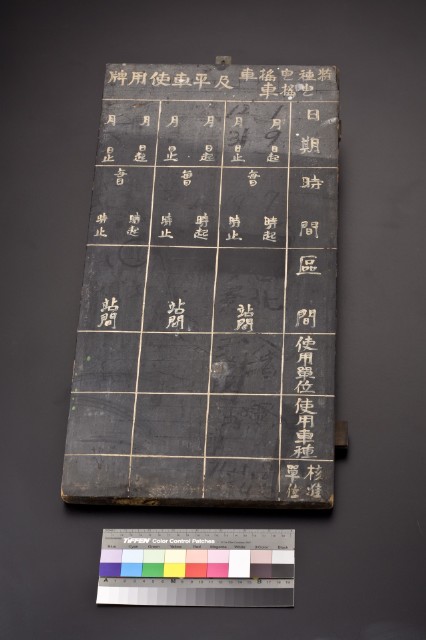 種电搖車
搖車
及平車使用牌
日期
月日起
月日止
月日起
月日止
月日起
月日止
時間
每日
時起
時止
每日
時起
時止
每日
時起
時止
區間
站間
站間
站間
使用單位
使用車種
核准
單位
TIFFEN Color Control Patches